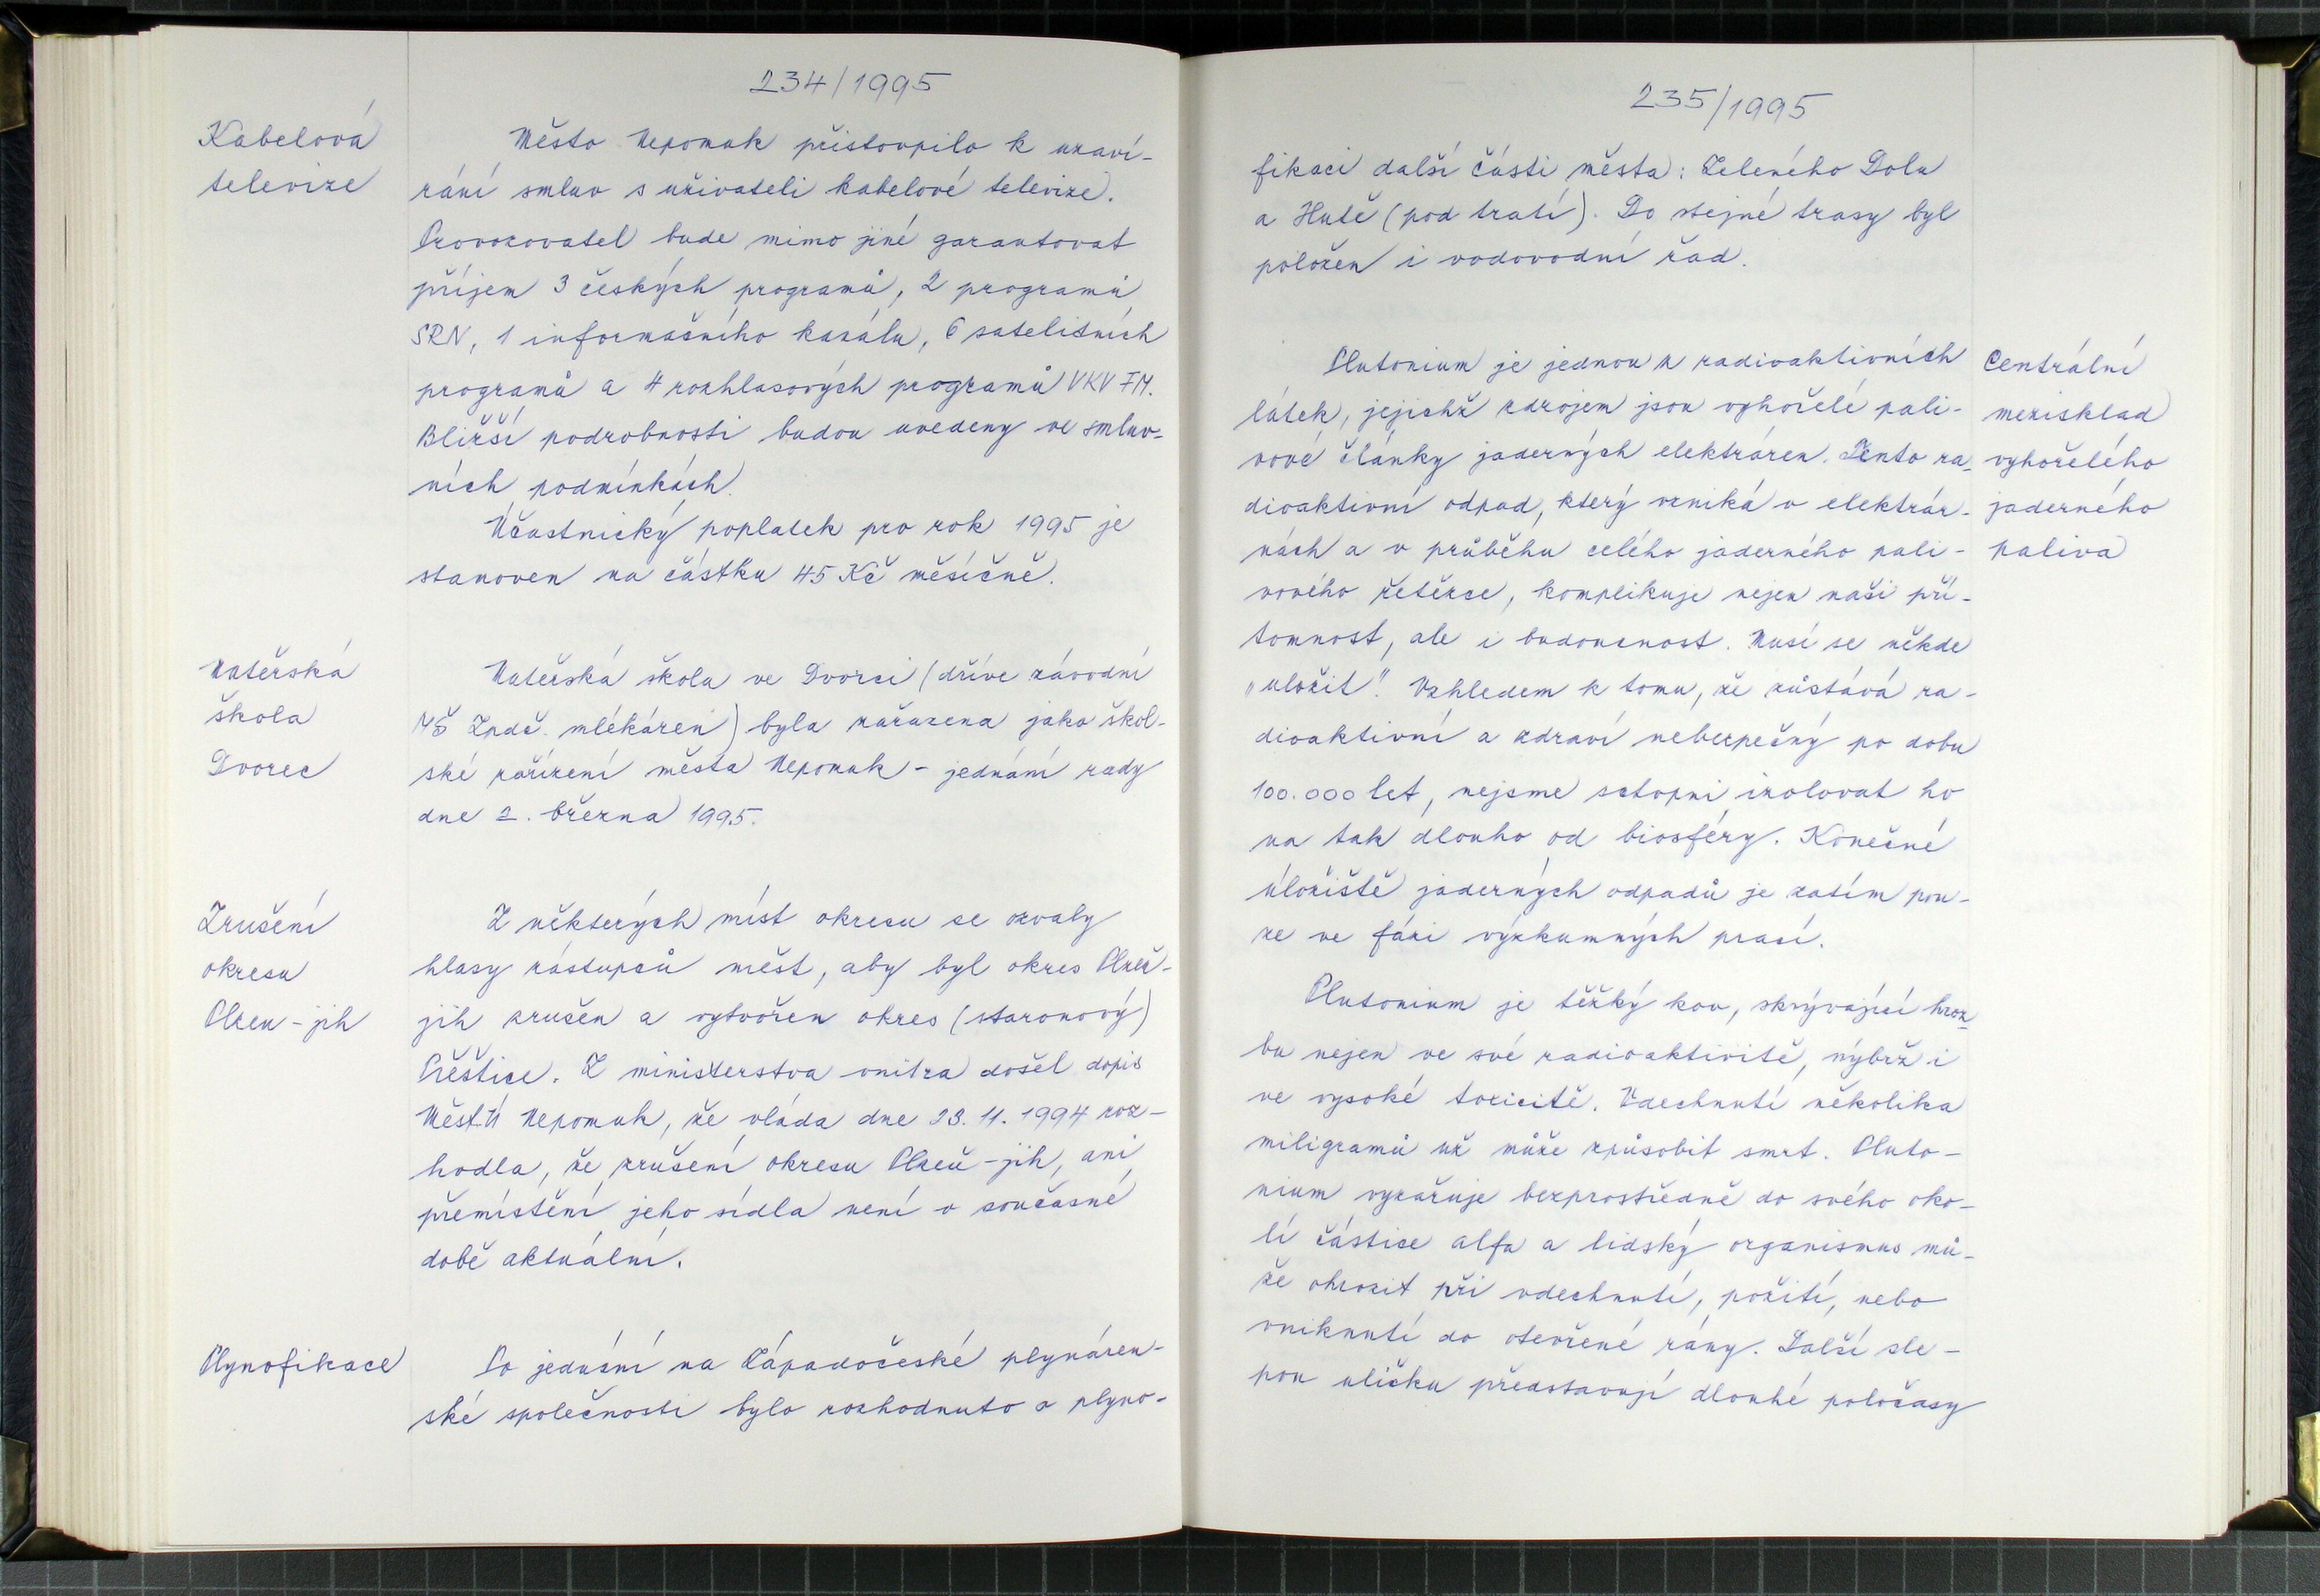 234/1995
Kabelová
televize
Město Nepomuk přistoupilo k uzaví-
rání smluv s uživateli kabelové televize.
Provozovatel bude mimo jiné garantovat
příjem 3 českých programů, 2 programů
SRN, 1 informačního kanálu, 6 satelitních
programů a 4 rozhlasových programů VKV FM.
Bližší podrobnosti budou uvedeny ve smluv-
ních podmínkách.
Účastnický poplatek pro rok 1995 je
stanoven na částku 45 Kč měsíčně.
Mateřská
škola
Dvorec
Mateřská škola ve Dvorci (dříve závodní
MŠ Zpdč. mlékáren) byla zařazena jako škol-
ské zařízení města Nepomuk - jednání rady
dne 2. března 1995.
Zrušení
okresu
Plzeň - jih
Z některých míst okresu se ozvaly
hlasy zástupců měst, aby byl okres Plzeň-
jih zrušen a vytvořen okres (staronový)
Přeštice. Z ministerstva vnitra došel dopis
MěstÚ Nepomuk, že vláda dne 23. 11. 1994 roz-
hodla, že zrušení okresu Plzeň - jih, ani
přemístění jeho sídla není v současné
době aktuální.
Plynofikace
Po jednání na Západočeské plynáren-
ské společnosti bylo rozhodnuto o plyno-
235/1995
fikaci další části města: Zeleného Dolu
a Hutě (pod tratí). Do stejné trasy byl
položen i vodovodní řad.
Centrální
mezisklad
vyhořelého
jaderného
paliva
Plutonium je jednou z radioaktivních
látek, jejichž zdrojem jsou vyhořelé pali-
vové články jaderných elektráren. Tento ra-
dioaktivní odpad, který vzniká v elektrár-
nách a v průběhu celého jaderného pali-
vového řetězce, komplikuje nejen naši pří-
tomnost, ale i budoucnost. Musí se někde
"uložit". Vzhledem k tomu, že zůstává ra-
dioaktivní a zdraví nebezpečný po dobu
100.000 let, nejsme sctopni izolovat ho
na tak dlouho od biosféry. Konečné
úložiště jaderných odpadů je zatím pou-
ze ve fázi výzkumných prací.
Plutonium je těžký kov, skrývající hroz-
bu nejen ve své radioaktivitě, nýbrž i
ve vysoké toxicitě. Vdechnutí několika
miligramů už může způsobit smrt. Pluto-
nium vyzařuje bezprostředně do svého oko-
lí částice alfa a lidský organismus mů-
že ohrozit při vdechnutí, požití, nebo
vniknutí do otevřené rány. Další sle-
pou uličku představují dlouhé poločasy